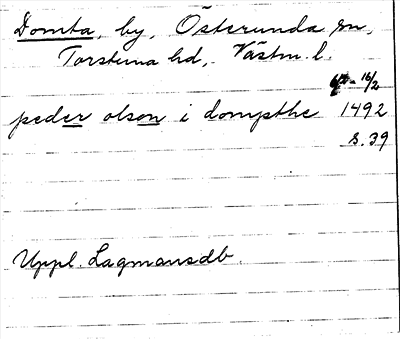 Domta, by, Österunda sn,
Torstuna hd, Västm. l.
16/2
peder olson i dompthe 1492
s. 39
Uppl. Lagmansdb.